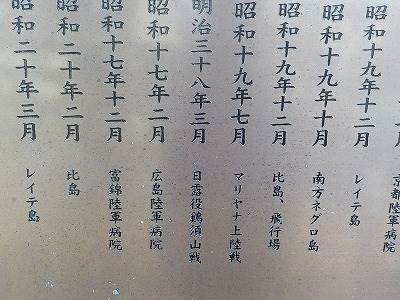 月 京都陸軍病院
昭和十九年十二月 レイテ島
昭和十九年十月 南方ネグロ島
昭和十九年十二月 比島、飛行場
昭和十九年七月 マリヤナ上陸戦
明治三十八年三月 日露役鶴須山戦
昭和十七年二月 広島陸軍病院
昭和十七年十二月 富錦陸軍病院
昭和二十年二月 比島
昭和二十年三月 レイテ島